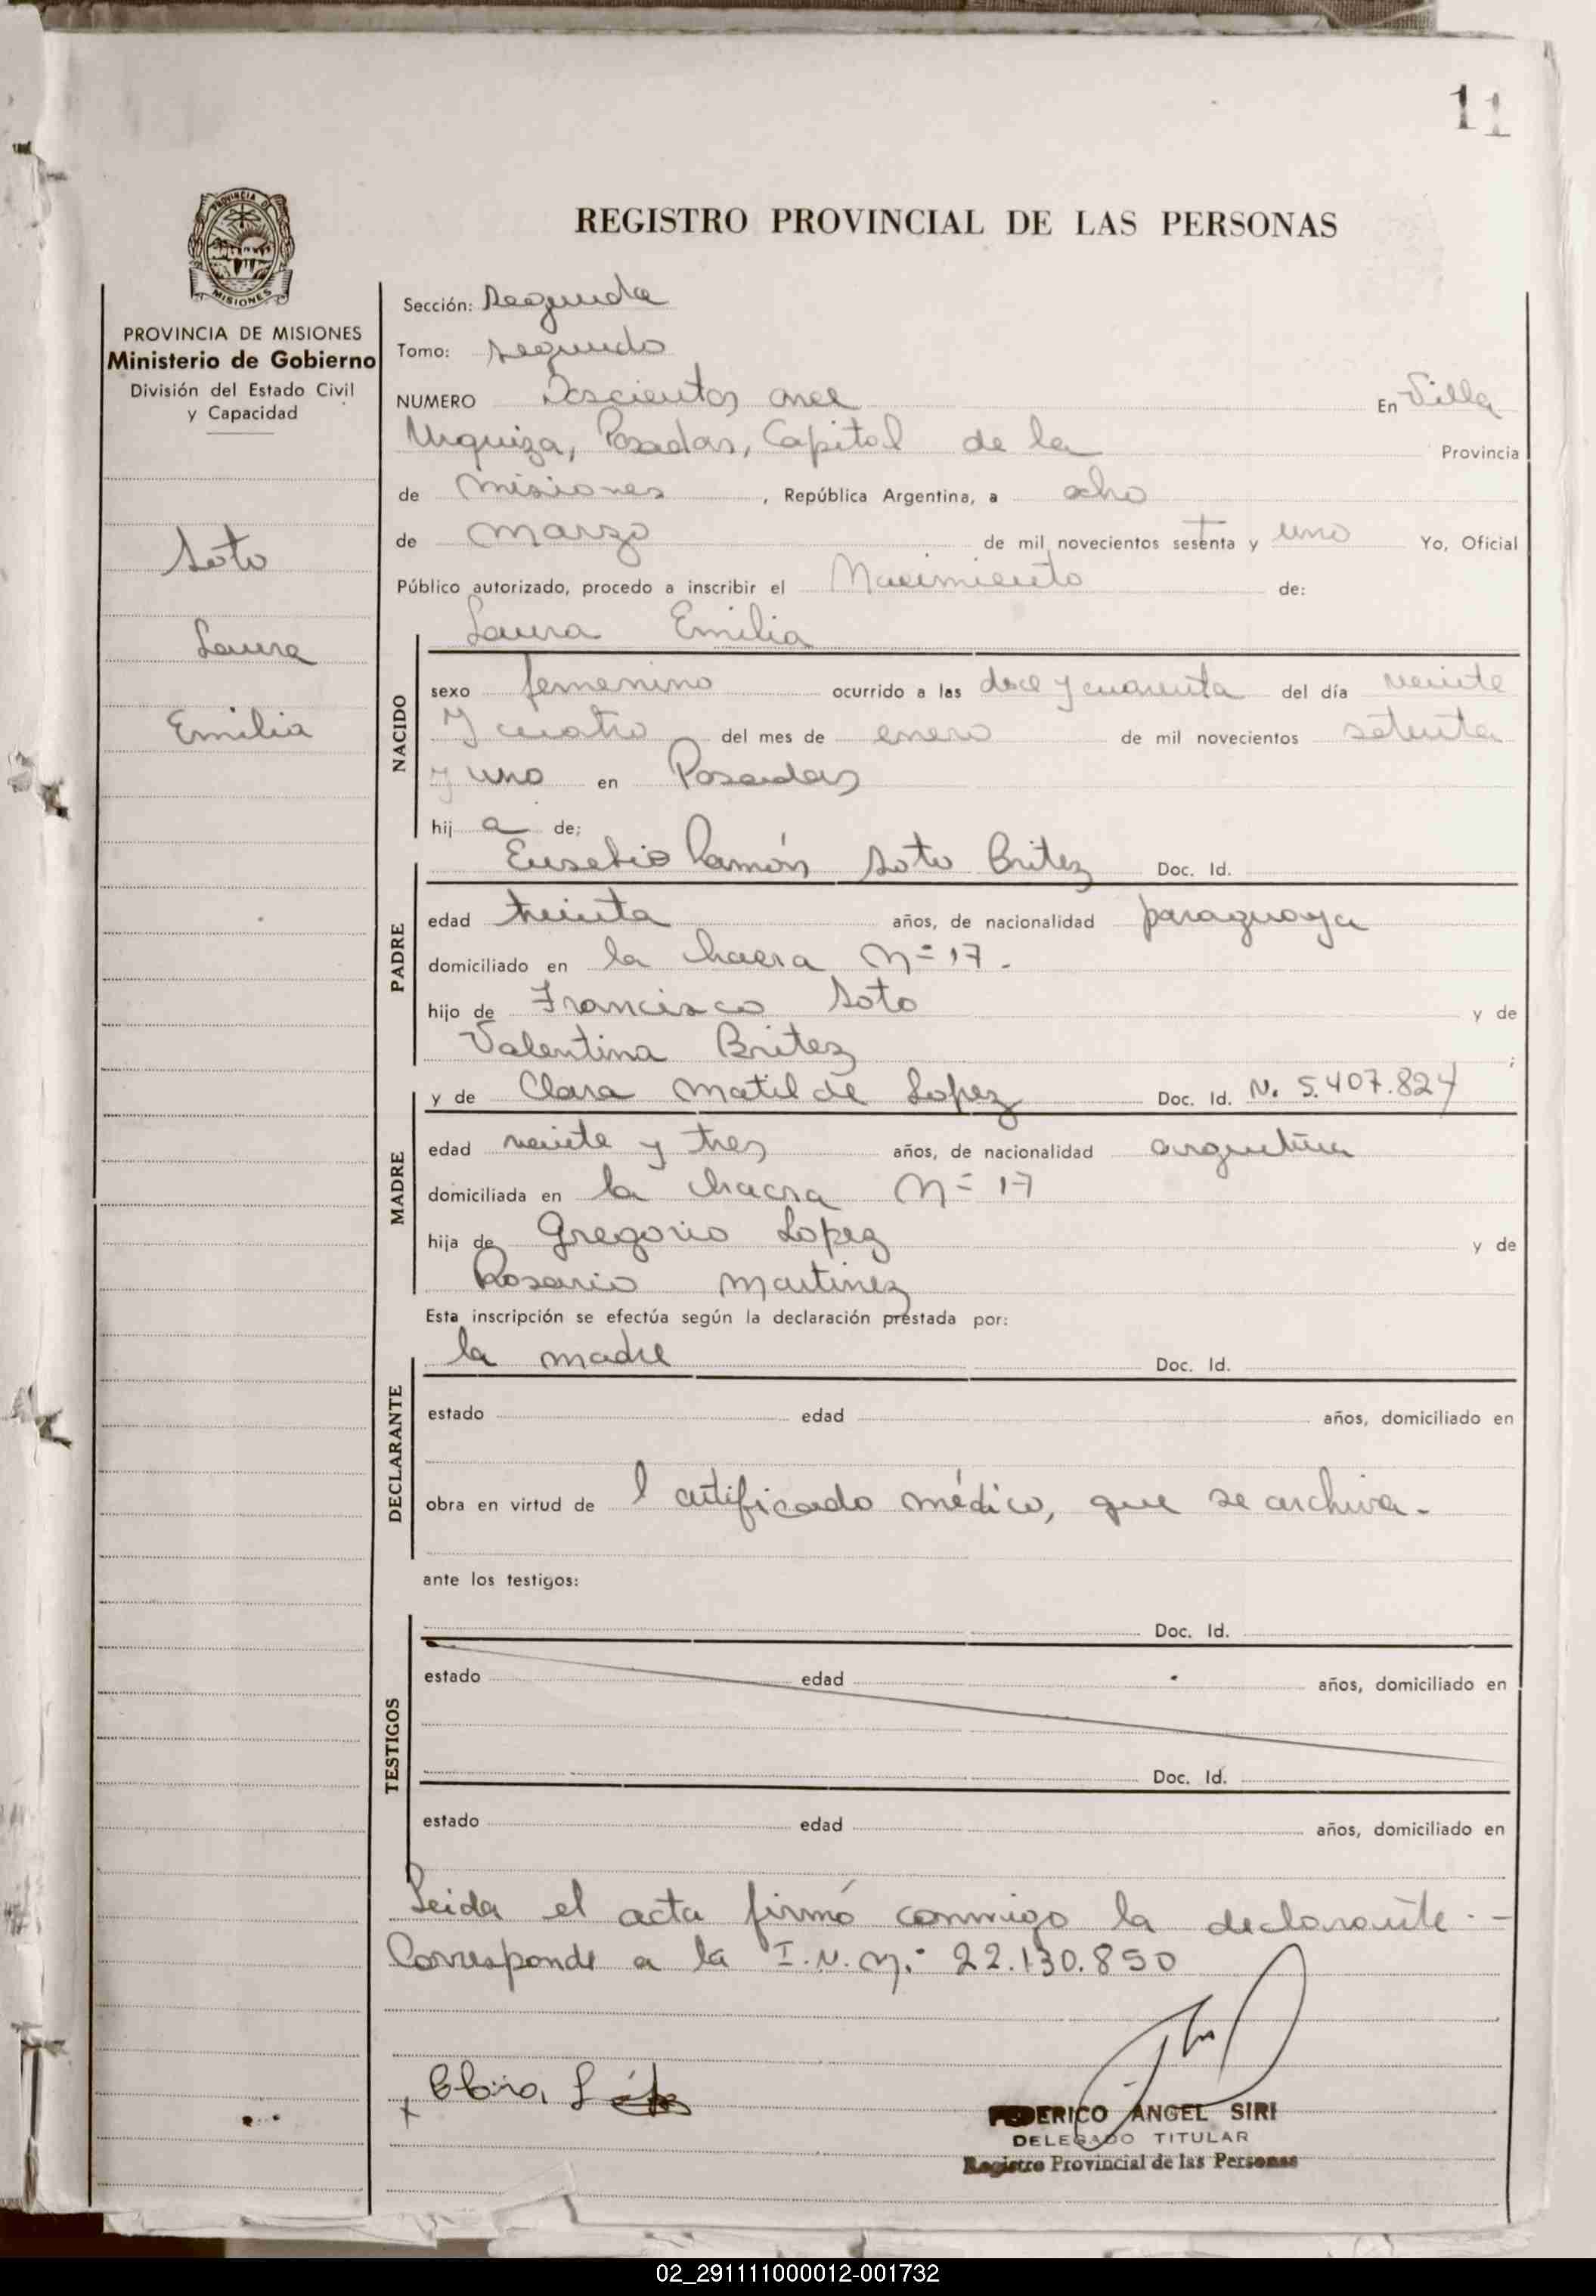 11
PROVINCIA DE MISIONES
REGISTRO PROVINCIAL DE LAS PERSONAS
PROVINCIA DE MISIONES
Ministerio de Gobierno
División del Estado Civil
y Capacidad
Soto
Laura
Emilia
Sección: Segunda
Tomo: Segundo
NUMERO Doscientos once En Villa
Urquiza, Posadas, Capital de la Provincia
de Misiones, República Argentina, a ocho
de marzo de mil novecientos setenta y uno Yo, Oficial
Público autorizado, procedo a inscribir el Nacimiento de:
Laura Emilia
NACIDO
sexo femenino ocurrido a las doce y cuarenta del día veinte
y cuatro del mes de enero de mil novecientos setenta
y uno en Posadas
hij a de;
PADRE
Eusebio Ramón Soto Britez Doc. Id.
edad treinta años, de nacionalidad paraguaya
domiciliado en la chacra N= 17.
hijo de Francisco Soto y de
Valentina Britez ;
MADRE
y de Clara Matilde Lopez Doc. Id. N. 5.407.824
edad veinte y tres años, de nacionalidad argentina
domiciliada en la chacra N= 17
hija de Gregorio Lopez y de
Rosario Martinez
Esta inscripción se efectúa según la declaración prestada por:
DECLARANTE
la madre Doc. Id.
estado edad años, domiciliado en
obra en virtud de l certificado médico, que se archiva.
ante los testigos:
TESTIGOS
Doc. Id.
estado edad años, domiciliado en
Doc. Id.
estado edad años, domiciliado en
Leida el acta firmó conmigo la declarante.-
Corresponde a la I.N.N.: 22.130.850
FEDERICO ANGEL SIRI
DELEGADO TITULAR
Registro Provincial de las Personas
02_291111000012-001732